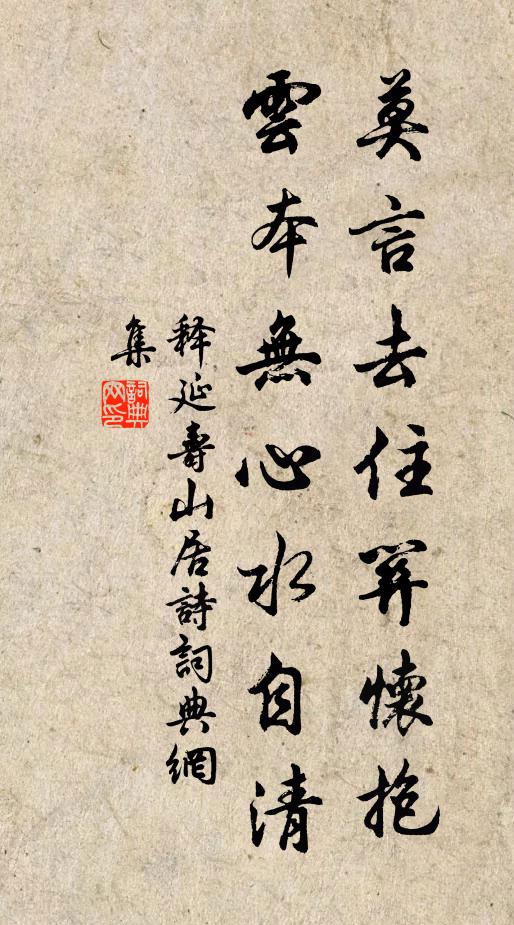 莫言去住關懷抱
雲本無心水自清
釋延壽山居詩詞典網
集
詞典
网印